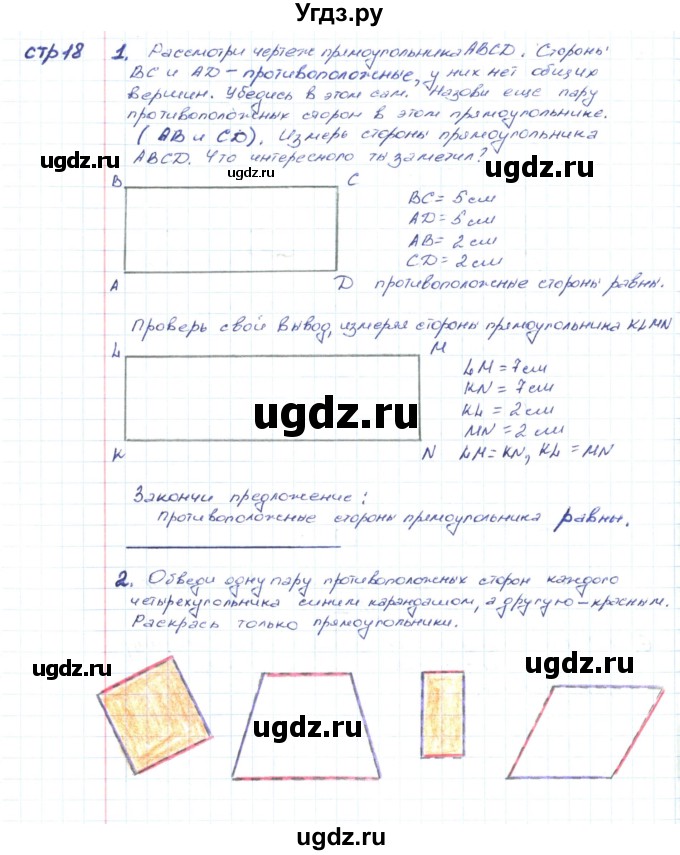 Угдз.ру
стр 18
1. Рассмотри чертеж прямоугольника ABCD. Стороны
BC и AD - противоположные, у них нет общих
вершин. Убедись в этом сам. Назови еще пару
противоположных сторон в этом прямоугольнике.
(AB и CD). Измерь стороны прямоугольника
ABCD. Что интересного ты заметил?
ugdz.ru
ugdz.ru
ugdz.ru
B
C
BC = 5 см
AD = 5 см
AB = 2 см
CD = 2 см
A
D
противоположные стороны равны.
Проверь свой вывод, измеряя стороны прямоугольника KLMN
L
M
LM = 7 см
KN = 7 см
KL = 2 см
MN = 2 см
ugdz.ru
K
N
LM = KN, KL = MN
Закончи предложение:
Противоположные стороны прямоугольника равны.
2. Обведи одну пару противоположных сторон каждого
четырехугольника синим карандашом, а другую - красным.
Раскрась только прямоугольники.
ugdz.ru
ugdz.ru
ugdz.ru
ugdz.ru
ugdz.ru